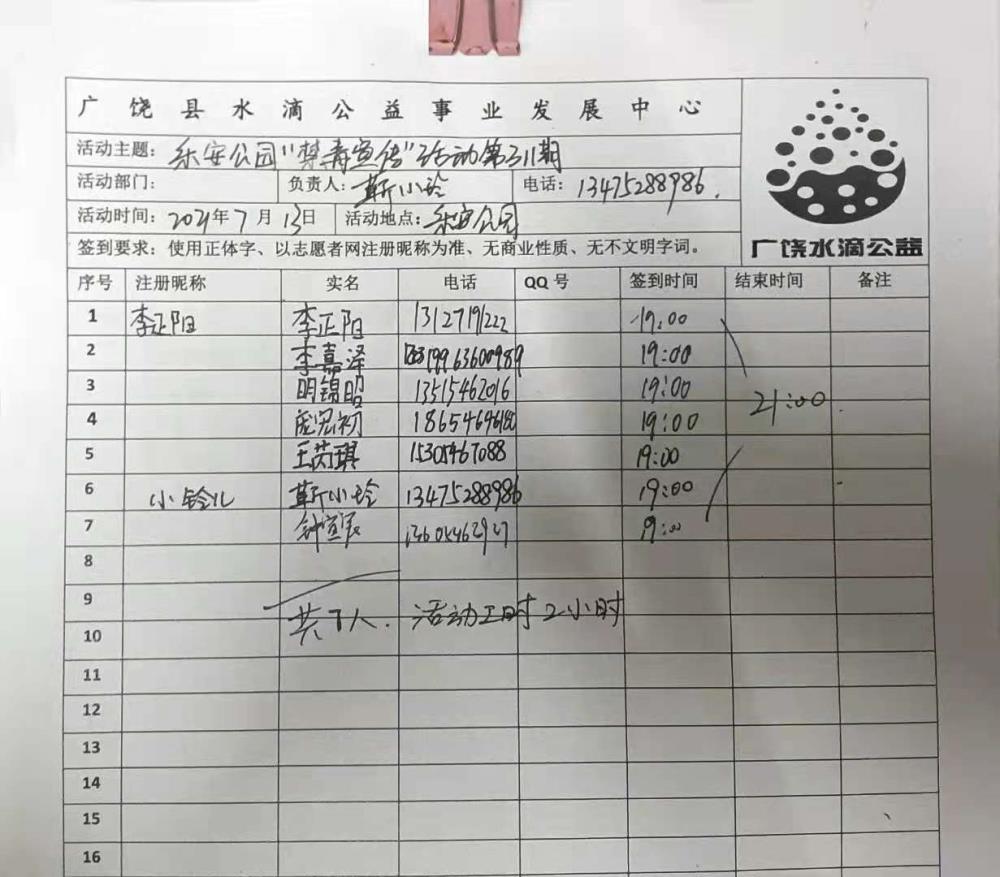 广饶县水滴公益事业发展中心
活动主题：乐安公园"禁毒宣传"活动第311期
活动部门： 负责人：靳小玲 电话：13475288986.
活动时间：2021年7月13日 活动地点：乐安公园
签到要求：使用正体字、以志愿者网注册昵称为准、无商业性质、无不文明字词。
广饶水滴公益
序号 注册昵称 实名 电话 QQ号 签到时间 结束时间 备注
1 李正阳 李正阳 13127191222 19:00
2 李嘉泽 19963600989 19:00
3 明锦昭 13515462016 19:00
21:00
4 庞宏初 19:00
5 王芮琪 15305467088 19:00
6 小铃儿 靳小玲 13475288986 19:00
7 钟宣辰 19:00
8
9
共7人. 活动工时2小时
10
11
12
13
14
15
16